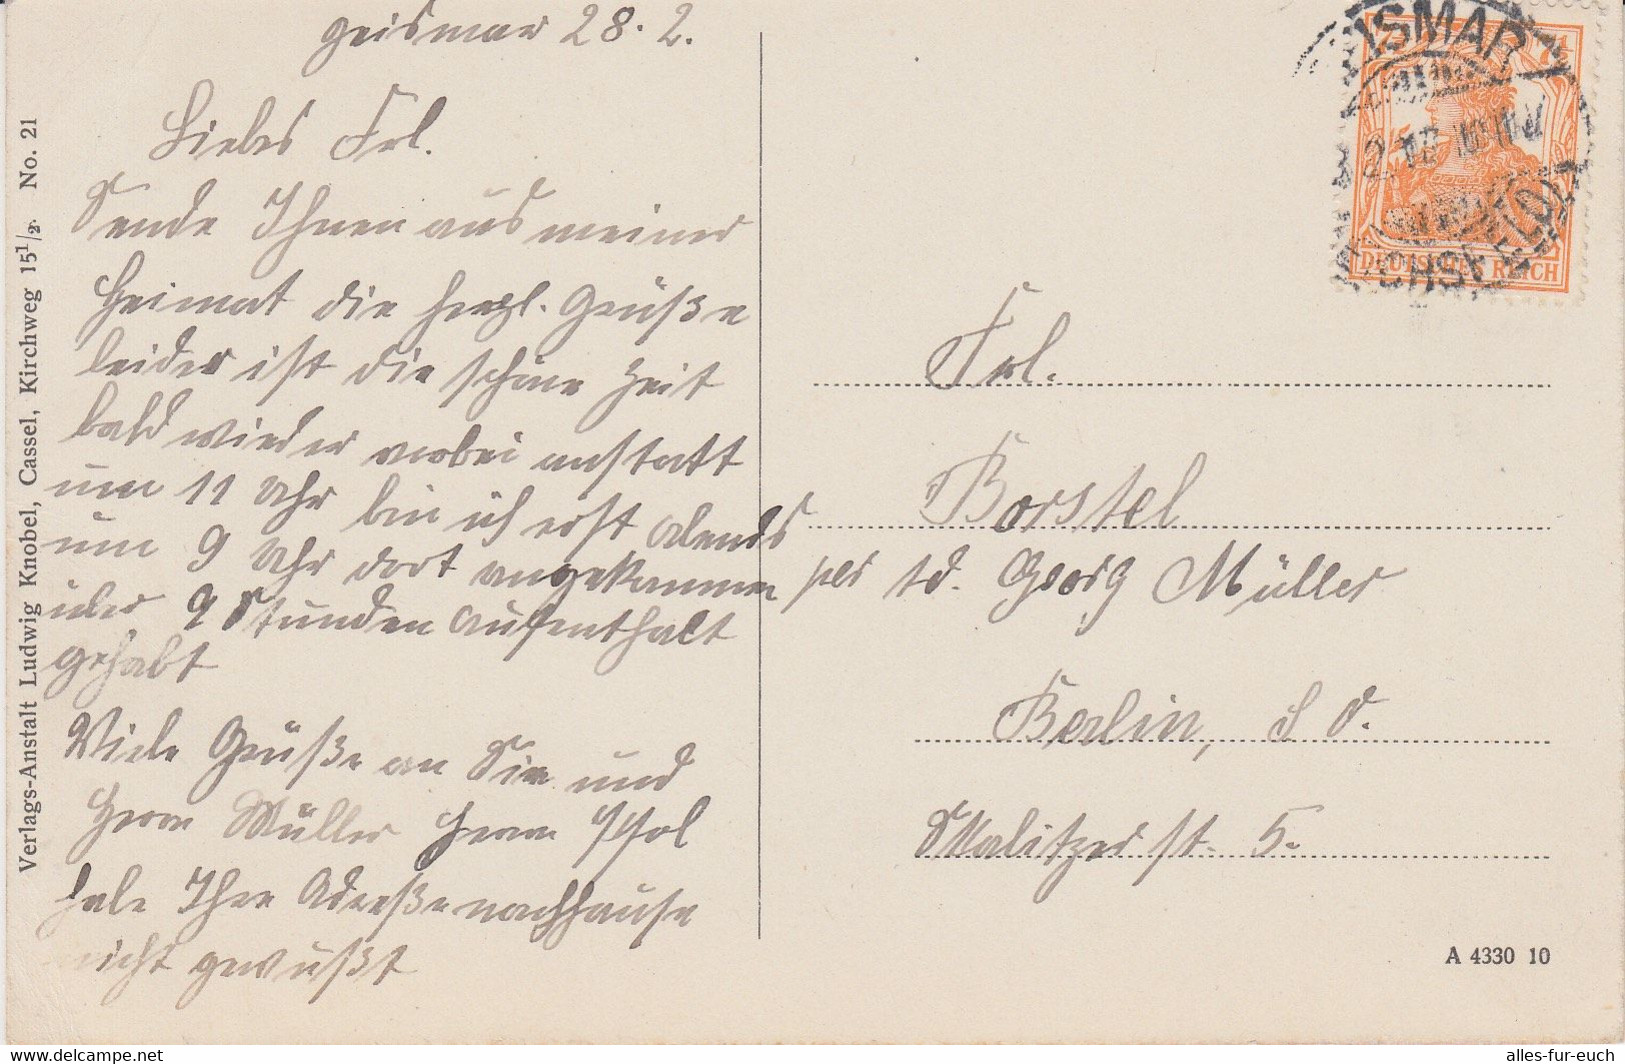 Geismar 28. 2.
Liebes Frl.
Sende Ihnen aus meiner
Heimat die herzl. Grüße
leider ist die schöne Zeit
bald wieder vorbei anstatt
um 11 Uhr bin ich erst abends
um 9 Uhr dort angekommen
über 9 Stunden Aufenthalt
gehabt
Viele Grüße an Sie und
Herrn Müller Herrn
habe Ihre Adreße nachhause
nicht gewußt
Verlags-Anstalt Ludwig Knobel, Cassel, Kirchweg 15 1/2. No. 21
DEUTSCHES REICH
Frl.
Borstel
per Ad. Georg Müller
Berlin, S O.
Skalitzer st. 5.
A 4330 10
alles-fur-euch
https://www.delcampe.net